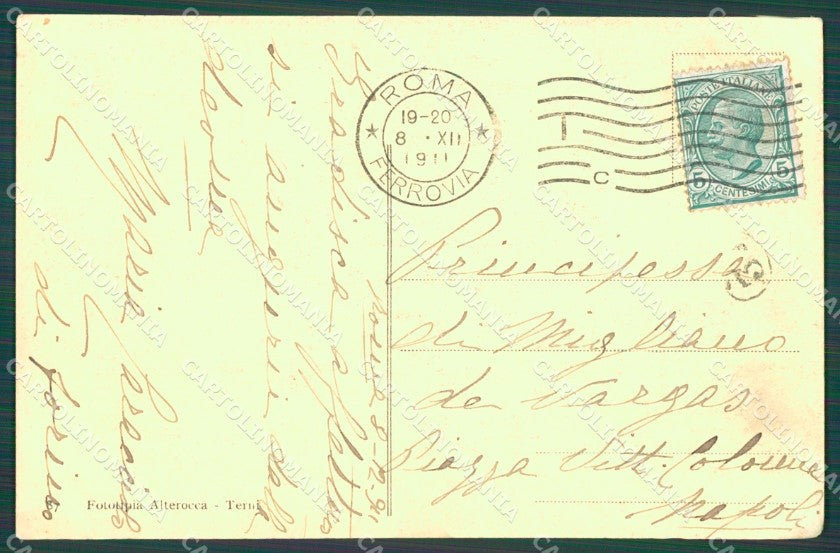 ROMA
19-20
8 · XII
1911
FERROVIA
I
C
POSTE ITALIANE
5 5
CENTESIMI
15
Principessa
di Migliano
de Vargas
Piazza Vitt. Colonna
Napoli
Roma 8-12-911
Gradisca affettuosi
auguri
Maria
di Forino
87 Fototipia Alterocca - Terni
CARTOLINOMANIA